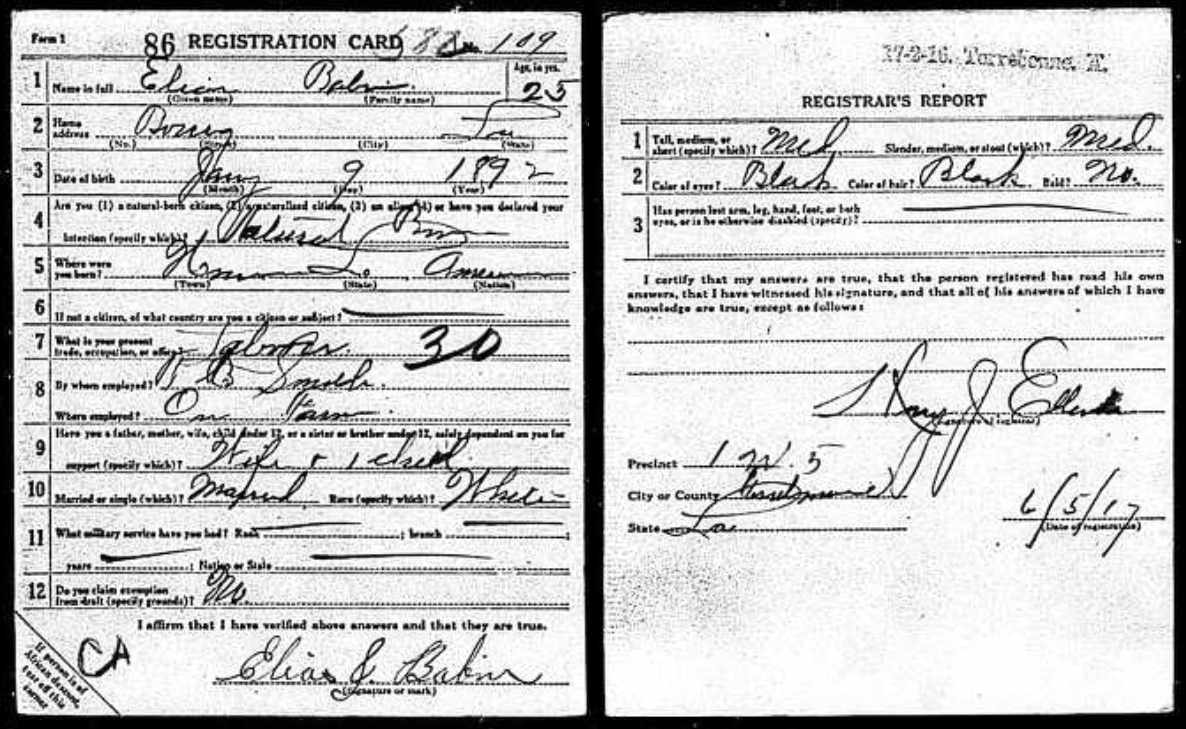 Form 1
86 REGISTRATION CARD No. 109
1 Name in full Elias Babin Age, in yrs. 25
(Given name) (Family name)
2 Home address Bourg La
(No.) (Street) (City) (State)
3 Date of birth Jany 9 1892
(Month) (Day) (Year)
4 Are you (1) a natural-born citizen, (2) a naturalized citizen, (3) an alien, (4) or have you declared your
intention (specify which)? Natural Born
5 Where were you born? La. America
(Town) (State) (Nation)
6 If not a citizen, of what country are you a citizen or subject?
7 What is your present trade, occupation, or office? Laborer. 30
8 By whom employed? Smith.
Where employed? On Farm
9 Have you a father, mother, wife, child under 12, or a sister or brother under 12, solely dependent on you for
support (specify which)? Wife & 1 child
10 Married or single (which)? Married Race (specify which)? White
11 What military service have you had? Rank ; branch ;
years ; Nation or State
12 Do you claim exemption from draft (specify grounds)? No.
I affirm that I have verified above answers and that they are true.
CA
Elias J. Babin
(Signature or mark)
If person is of
African descent,
tear off this
corner
17-2-16. Terrebonne. A.
REGISTRAR'S REPORT
1 Tall, medium, or short (specify which)? Med Slender, medium, or stout (which)? Med.
2 Color of eyes? Black Color of hair? Black Bald? No.
3 Has person lost arm, leg, hand, foot, or both
eyes, or is he otherwise disabled (specify)?
I certify that my answers are true, that the person registered has read his own
answers, that I have witnessed his signature, and that all of his answers of which I have
knowledge are true, except as follows:
(Signature of registrar)
Precinct 1 W. 5
City or County Terrebonne
State La
6/5/17
(Date of registration)